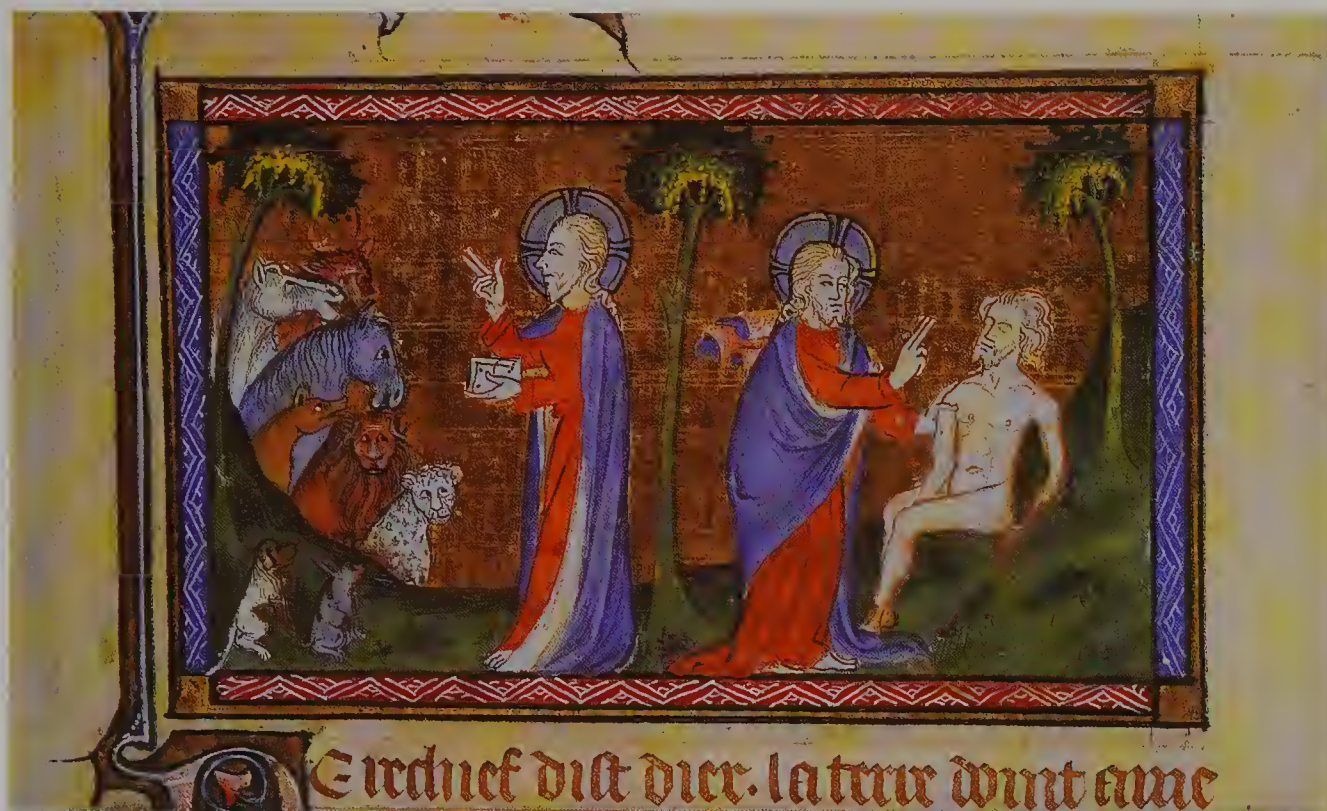 Eirchief dist diex. la terre doint ame